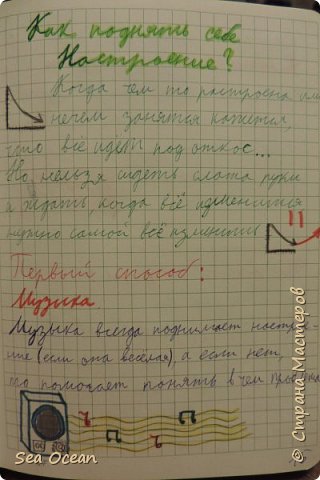 Как поднять себе
Настроение?
Когда чем то растроена или
нечем занятся кажется,
что всё идёт под откос...
Но нельзя сидеть слота руки
и ждать, когда всё изменится
нужно самой всё изменить !!
Первый способ:
Музыка
Музыка всегда поднимает настрое-
ние (если она веселая), а если нет,
то помогает понять в чем проблема
© Страна Мастеров
Sea Ocean